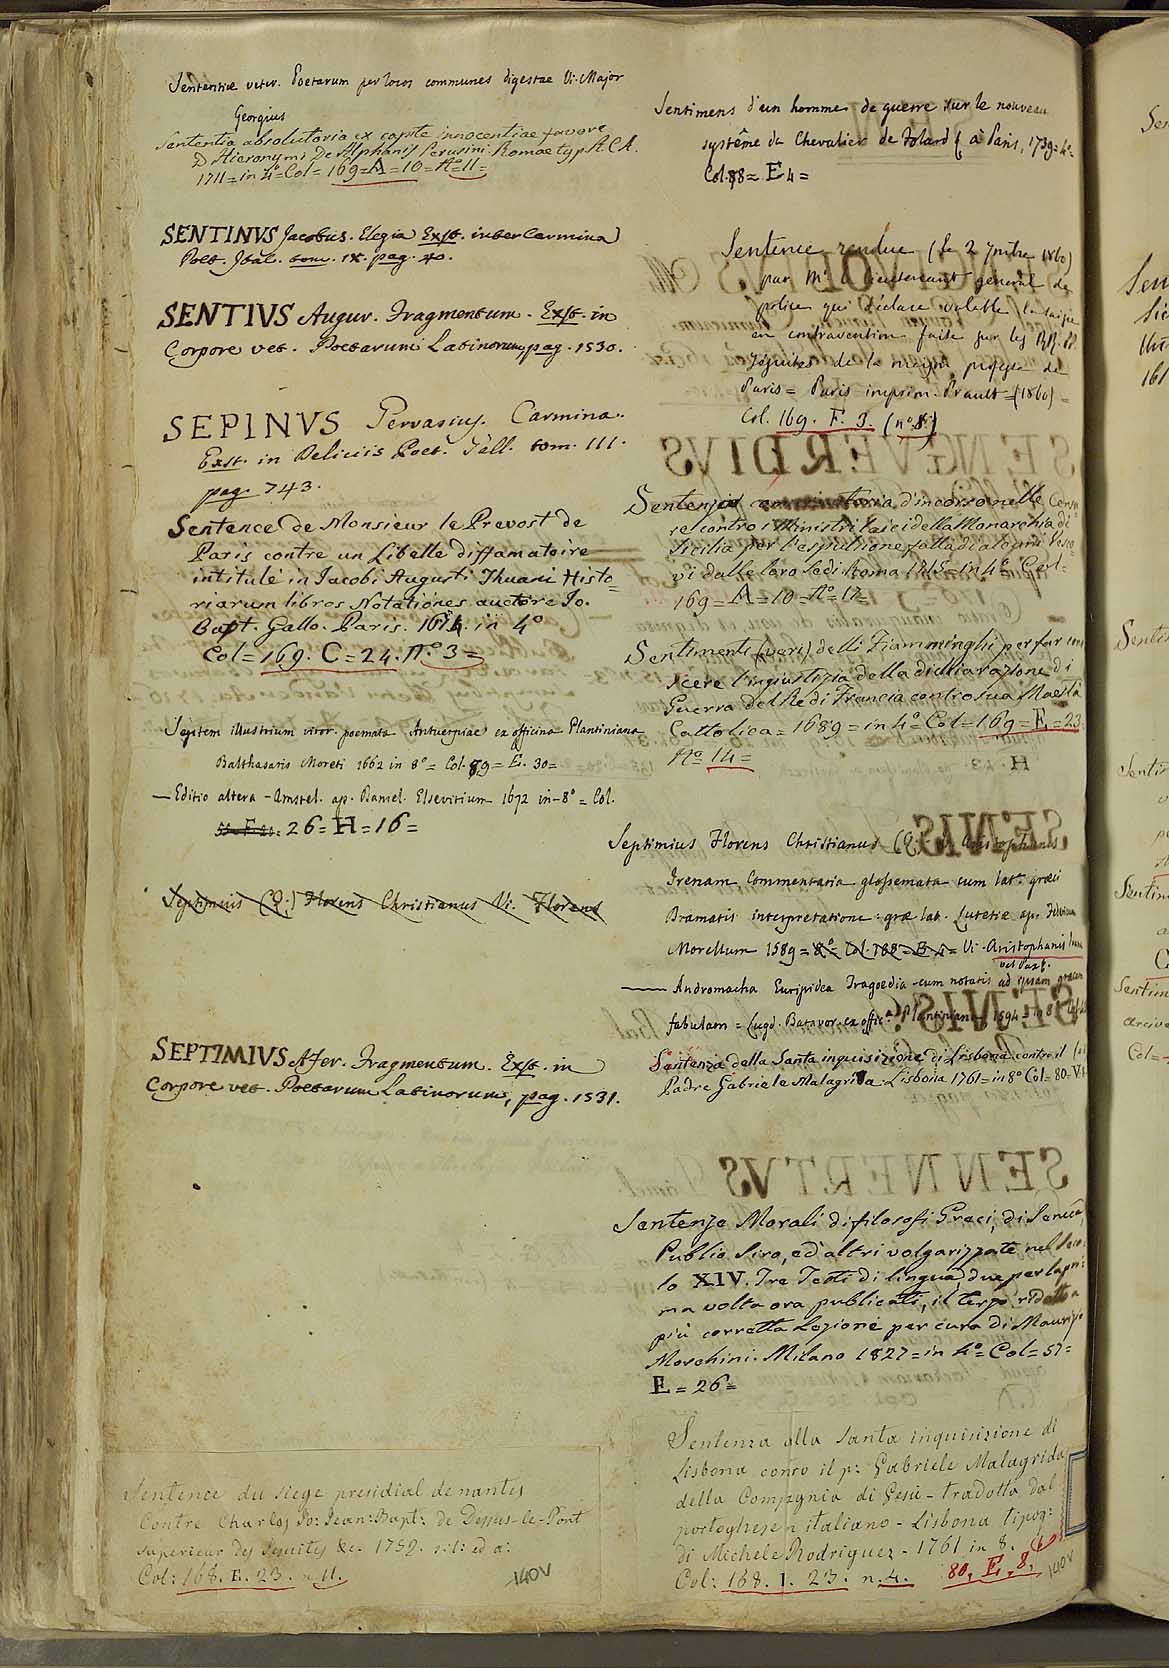 Sententiæ veter. Poetarum per locos communes digestae Vi. Major
Georgius
Sententia absolutoria ex capite innocentiae favore
D. Hieronymi De Alphanis Perusini. Romae typ. R. C. A.
1711 = in 4° = Col = 169 = A = 10 = N° 11 =
SENTINVS Jacobus. Elegia Exst. inter Carmina
Poet. Ital. tom. IX. pag. 40.
SENTIVS Augur. Fragmentum. Exst. in
Corpore vet. Poetarum Latinorum, pag. 1530.
SEPINVS Gervasius. Carmina.
Exst. in Deliciis Poet. Gall. tom. III.
pag. 743.
Sentence de Monsieur le Prevost de
Paris contre un Libelle diffamatoire
intitulé in Jacobi Augusti Thuani Histo=
riarum libros Notationes auctore Jo.
Bapt. Gallo. Paris. 1614. in 4°
Col = 169. C = 24. N.° 3 =
Septem illustrium viror. poemata Antuerpiae ex officina Plantiniana
Balthasaris Moreti 1662 in 8° = Col. 89 = E. 30 =
— Editio altera - Amstel. ap. Daniel. Elsevirium 1672 in - 8° = Col.
26 = H = 16 =
Septimius (Q.) Florens Christianus Vi. Florens
SEPTIMIVS Afer. Fragmentum. Exst. in
Corpore vet. Poetarum Latinorum, pag. 1531.
Sentence du siege presidial de nantes
Contre Charles Jo: Jean: Bapt: de Dessus-le-Pont
superieur des Jesuites &c. 1759. s: l: ed a:
Col: 168. E. 23. n. 11.
140v
Sentimens d'un homme de guerre sur le nouveau
systême du Chevalier de Folard à Paris, 1739 = 4° =
Col. 88 = E 4 =
Sentence rendue (le 2 7mbre 1860)
par Mr le lieutenant general de
police qui declare valable la saisie
en contravention faite sur les RR. PP.
Jésuites de la maison professe de
Paris = Paris imprim. Prault = (1860) =
Col. 169. F. 3. (n° 8)
Sentenza d'incorso nelle Censu
re contro i Ministri Laici della Monarchia di
Sicilia per l'espulsione fatta di alcuni Vesco=
vi dalle loro Sedi Roma 1715 = in 4° Col =
169 = A = 10 = N° 17 =
Sentimenti (veri) delli Fiamminghi per far con
scere l'ingiustizia della dichiarazione di
Guerra del Re di Francia contro sua Maestà
Cattolica = 1689 = in 4° = Col = 169 = E = 23.
N° 14 =
Septimius Florens Christianus (Q.) in Aristophanis
Irenam Commentaria glossemata cum lat. græci
Dramatis interpretatione græ lat. Lutetiæ ap. Federicum
Morellum 1589 = 8° = Col. 188 = B 4 = Vi. Aristophanis Irena
vel Pax.
—— Andromacha Euripidea Tragoedia cum notatis ad ipsam græcam
fabulam = Lugd. Batavor. ex offic.a Plantiniana 1594 = in 8°
Sentenza della Santa inquisizione di Lisbona contro il
Padre Gabriele Malagrida. Lisbona 1761 = in 8° Col = 80 =
Sentenze Morali di filosofi Greci, di Seneca,
Publio Siro, ed altri volgarizzate nel seco=
lo XIV. Tre Testi di lingua, due per la pri=
ma volta ora publicati, il terzo ridotto a
più corretta Lezione per cura di Maurizio
Moschini. Milano 1827 = in 4° = Col = 57 =
E = 26 =
Sentenza alla Santa inquisizione di
Lisbona contro il p: Gabriele Malagrida
della Compagnia di Gesù - tradotta dal
portoghese in italiano - Lisbona tipog:
di Michele Rodriguez - 1761 in 8.
Col: 168. I. 23. n. 4. 80, E, 8,
140v